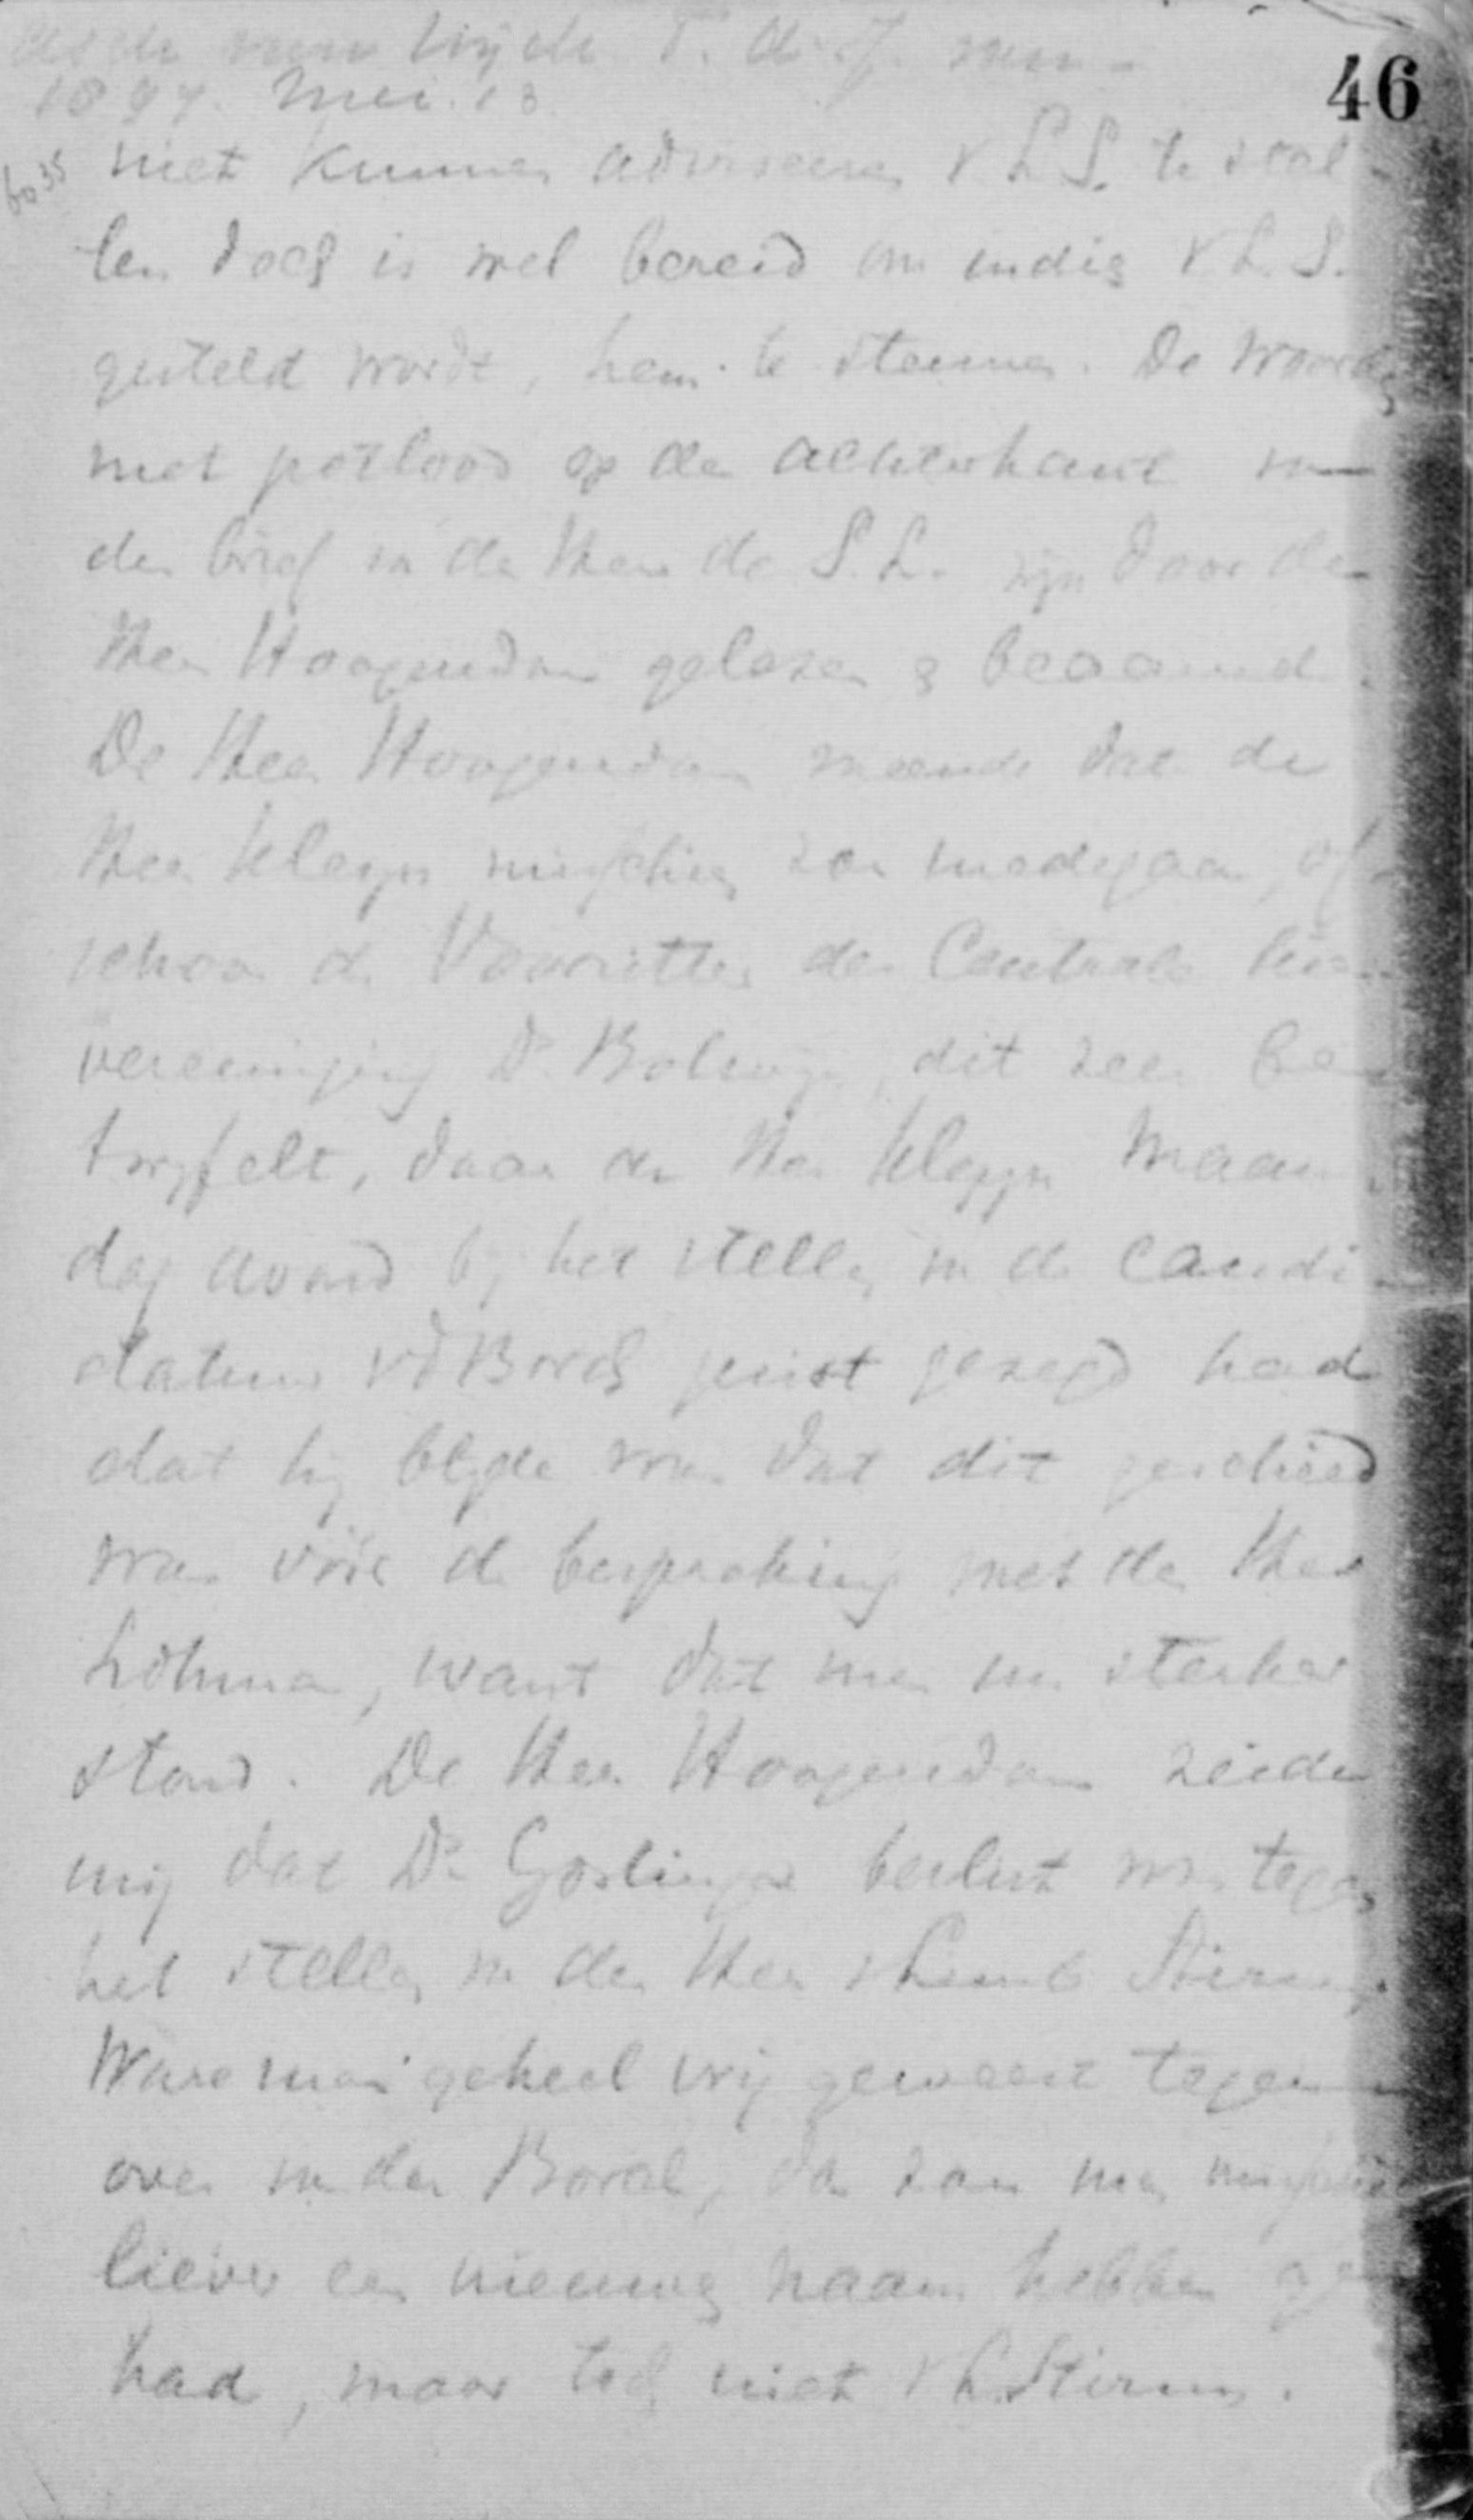 46
1897. Mei. 13.
niet kunnen adviseeren v. L S. te stel-
len doch is wel bereid om indien v L. S.
gesteld wordt, hem te steunen. De woorden
met potlood op de achterkant van
den brief van den Heer de S. L. zijn door den
Heer Hoogendam gelezen & beaamd.
De Heer Hoogendam meende dat de
Heer Kleyn misschien zou medegaan, of-
schoon de Voorzitter der Centrale kies-
vereeniging Dr
 dit zeer be-
twyfelt, daar de Heer Kleyn Maan-
dag avond bij het stellen van de candi-
datuur vd Borch juist gezegd had
dat hij blyde was dat dit geschied
was vóór de bespreking met den Heer
Lohman, want dat men nu sterker
stond. De Heer Hoogendam zeide
mij dat Dr Goslinga beslist was tegen
het stellen van den Heer v Limb Stirum.
Ware men geheel vrij geweest tegen-
over van der Borch, dan zou men misschien
liever een nieuwe naam hebben ge-
had, maar toch niet v L Stirum.